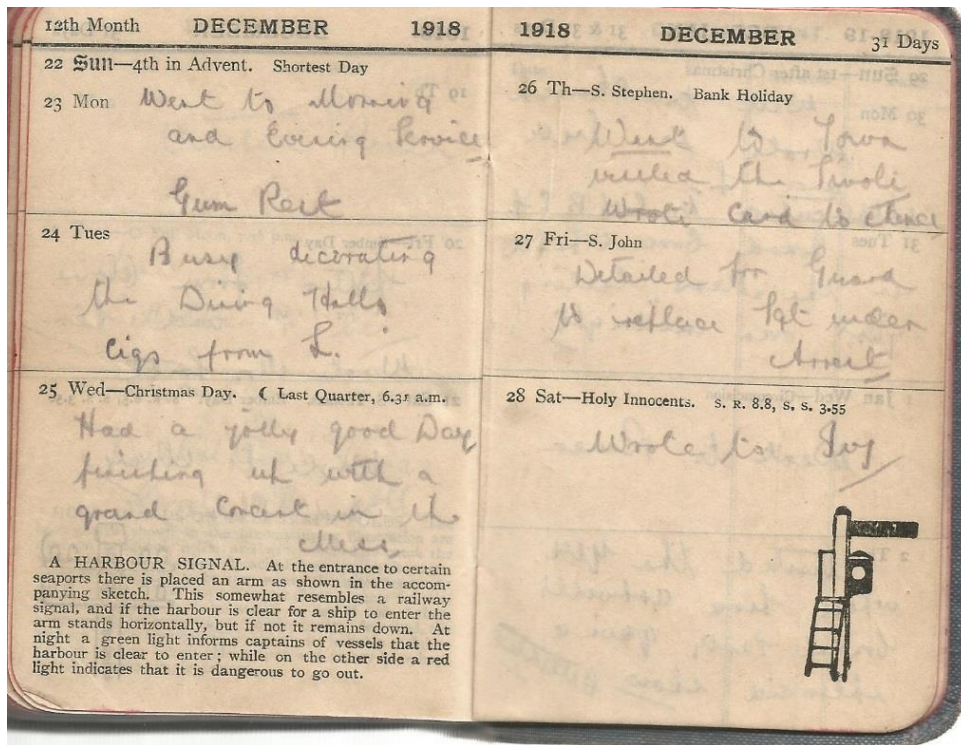 12th Month DECEMBER 1918
22 Sun—4th in Advent. Shortest Day
23 Mon Went to Morning
and Evening Service
Gum Rest
24 Tues
Busy decorating
the Dining Halls
Cigs from L.
25 Wed—Christmas Day. ☾ Last Quarter, 6.31 a.m.
Had a jolly good Day
finishing up with a
grand Concert in the
Mess
A HARBOUR SIGNAL. At the entrance to certain
seaports there is placed an arm as shown in the accom-
panying sketch. This somewhat resembles a railway
signal, and if the harbour is clear for a ship to enter the
arm stands horizontally, but if not it remains down. At
night a green light informs captains of vessels that the
harbour is clear to enter; while on the other side a red
light indicates that it is dangerous to go out.
1918 DECEMBER 31 Days
26 Th—S. Stephen. Bank Holiday
Went to Town
visited the Tivoli
Wrote Card to
27 Fri—S. John
Detailed for Guard
to replace Sgt under
Arrest
28 Sat—Holy Innocents. S. R. 8.8, S. S. 3.55
Wrote to Ivy